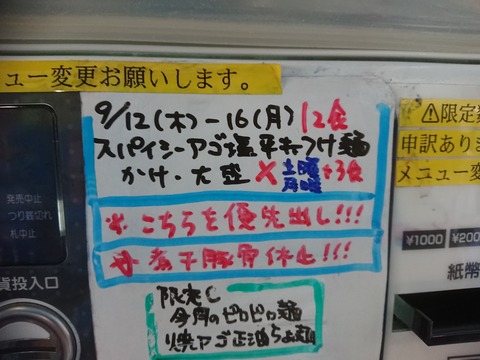 ニュー変更お願いします。
9/12(木)-16(月) 12食
スパイシーアゴ塩平打つけ麺
かけ・大盛 × 土曜 +3食
月曜
※こちらを優先出し!!!
※煮干豚骨休止!!!
限定C
今月のピロピロ麺
焼アゴ正油らぁ麺
発売中止
つり銭切れ
札中止
貨投入口
⚠限定
申訳あり
メニュー変
¥1000 ¥200
紙幣